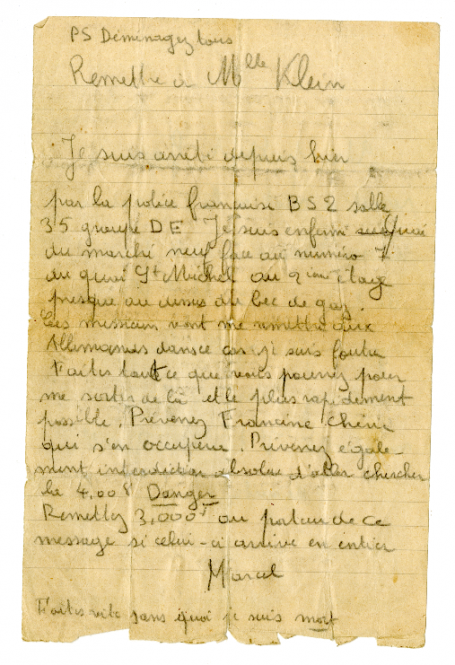 PS Déménagez tous
Remettre à Mlle Klein
Je suis arrêté depuis hier
par la police française BS2 salle
35 groupe DE Je suis enfermé
du marché neuf face au numéro 7
du quai St Michel au 2ième étage
presque au dessus du bec de gaz.
Ces messieurs vont me remettre aux
Allemands dans ce cas je suis foutu
Faites tout ce que vous pourrez pour
me sortir de là et le plus rapidement
possible. Prévenez Francine chérie
qui s'en occupera. Prévenez égale-
ment interdiction absolue d'aller chercher
le 4.00 Danger
Remettez 3,000f au porteur de ce
message si celui-ci arrive en entier
Marcel
Faites vite sans quoi je suis mort